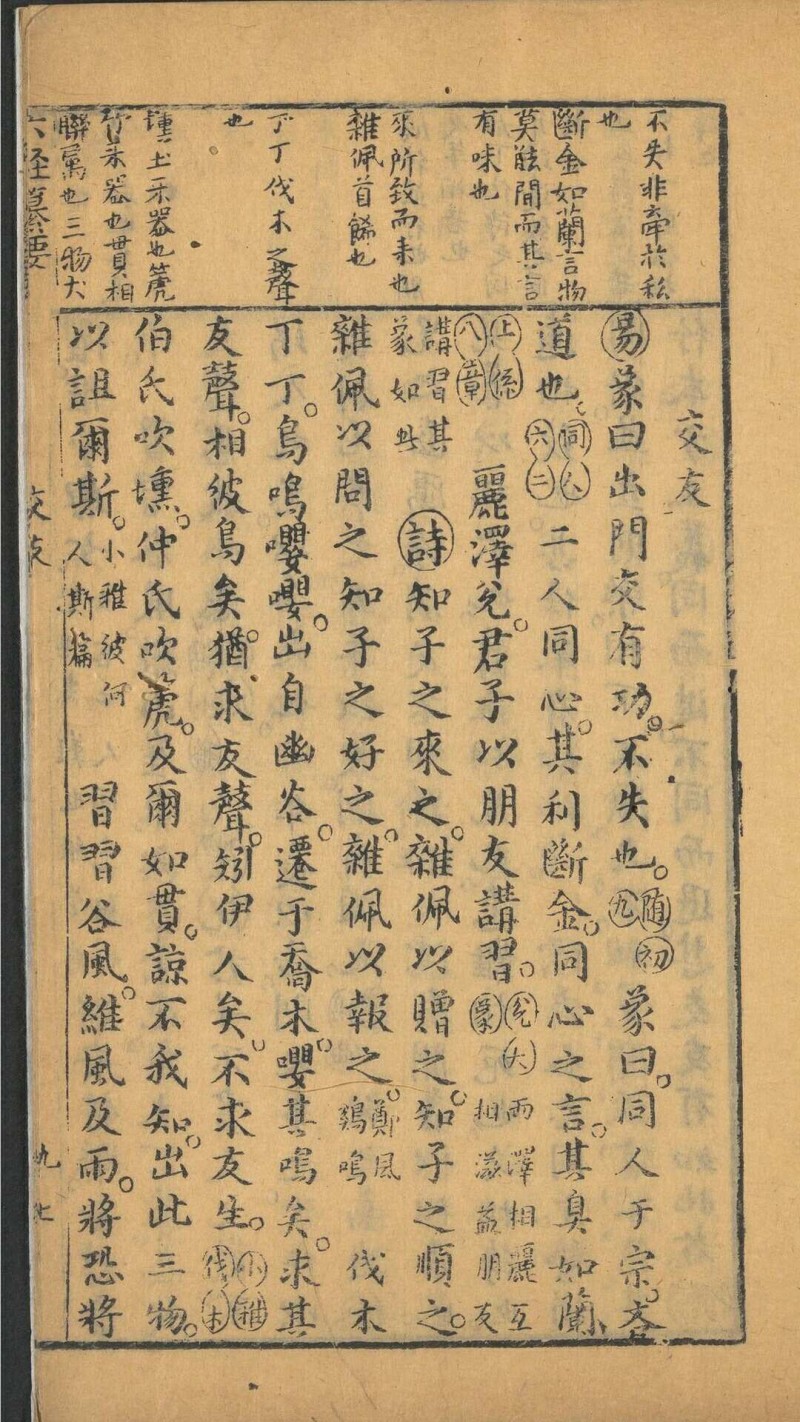 不失非牽於私
也
斷金如蘭言物
莫能間而其言
有味也
來所致而來也
雜佩首飾也
丁丁伐木之聲
也
壎土汞器也箎
竹汞器也貫相
聮属也三物犬
六経纂要
交友
易彖曰出門交有功不失也隨初九 象曰同人于宗吝
道也同人六二 二人同心其利斷金同心之言其臭如蘭
上係八章 麗澤兌君子以朋友講習兌大象 兩澤相麗互相滋益朋友
講習其象如此 詩知子之來之雜佩以贈之知子之順之
雜佩以問之知子之好之雜佩以報之鄭風鷄鳴 伐木
丁丁鳥鳴嚶嚶出自幽谷遷于喬木嚶其鳴矣求其
友聲相彼鳥矣猶求友聲矧伊人矣不求友生小雅伐木
伯氏吹壎仲氏吹箎及爾如貫諒不我知出此三物
以詛爾斯小雅彼何人斯篇 習習谷風維風及雨將恐將
交友
九七